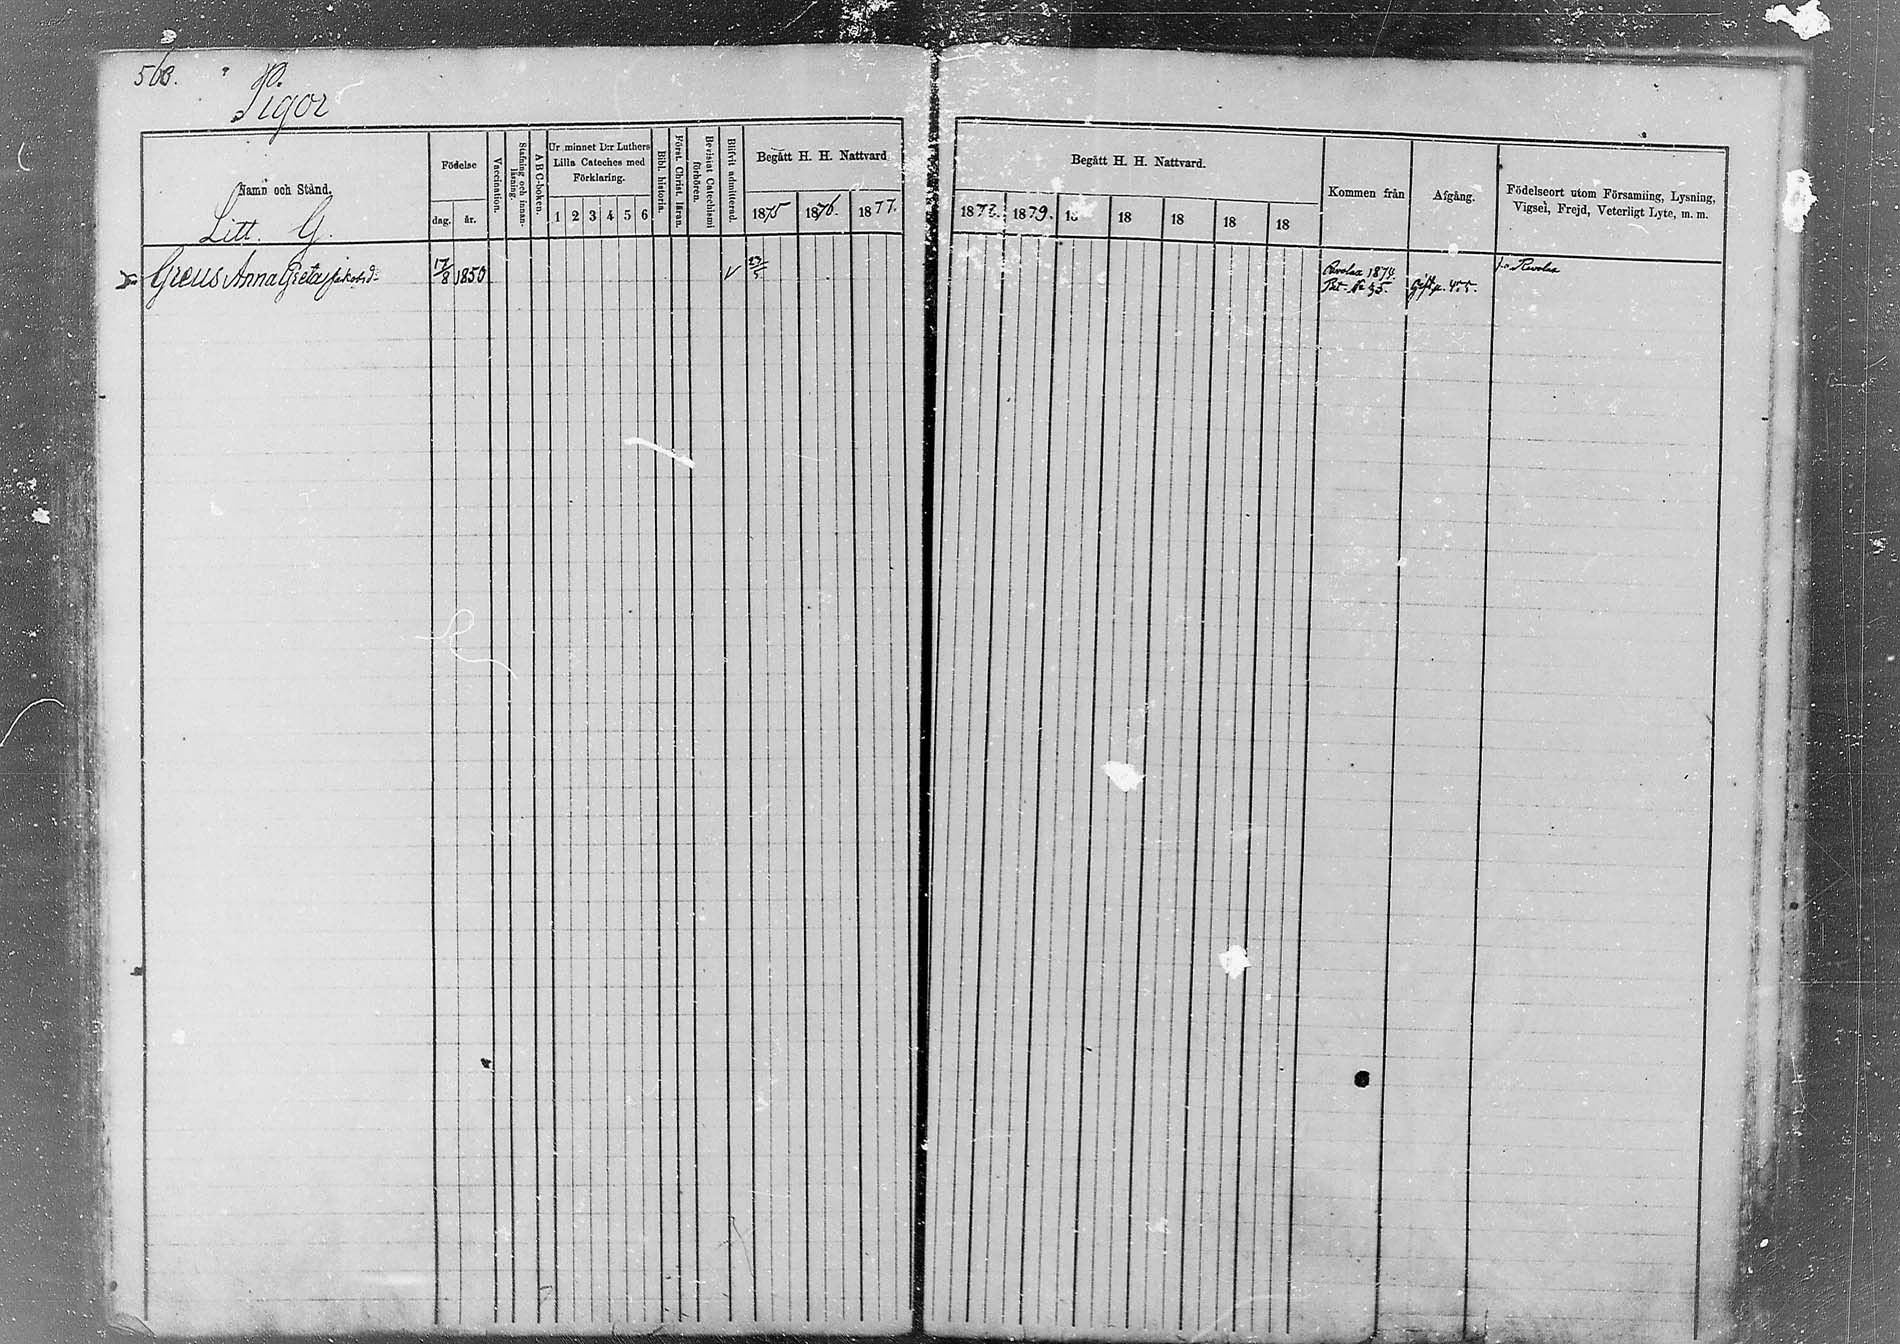 563.
Pigor
Namn och Stånd.
Litt. G.
Födelse
dag. år.
Vaccination.
Stafning och innan-
läsning.
A B C-boken.
Ur minnet D:r Luthers
Lilla Cateches med
Förklaring.
1 2 3 4 5 6
Bibl. historia.
Först. Christ. läran.
Bevistat Catechismi
förhören.
Blifvit admitterad.
Begått H. H. Nattvard
1875 1876. 1877.
Begått H. H. Nattvard.
1879. 18 18 18 18 18
Kommen från
Afgång.
Födelseort utom Församling, Lysning,
Vigsel, Frejd, Veterligt Lyte, m. m.
Greus Anna Greta Jakobsd. 17/8 1850
Revolax 1874.
Bet. No 35.
Gift p. 455.
f. i Revolax